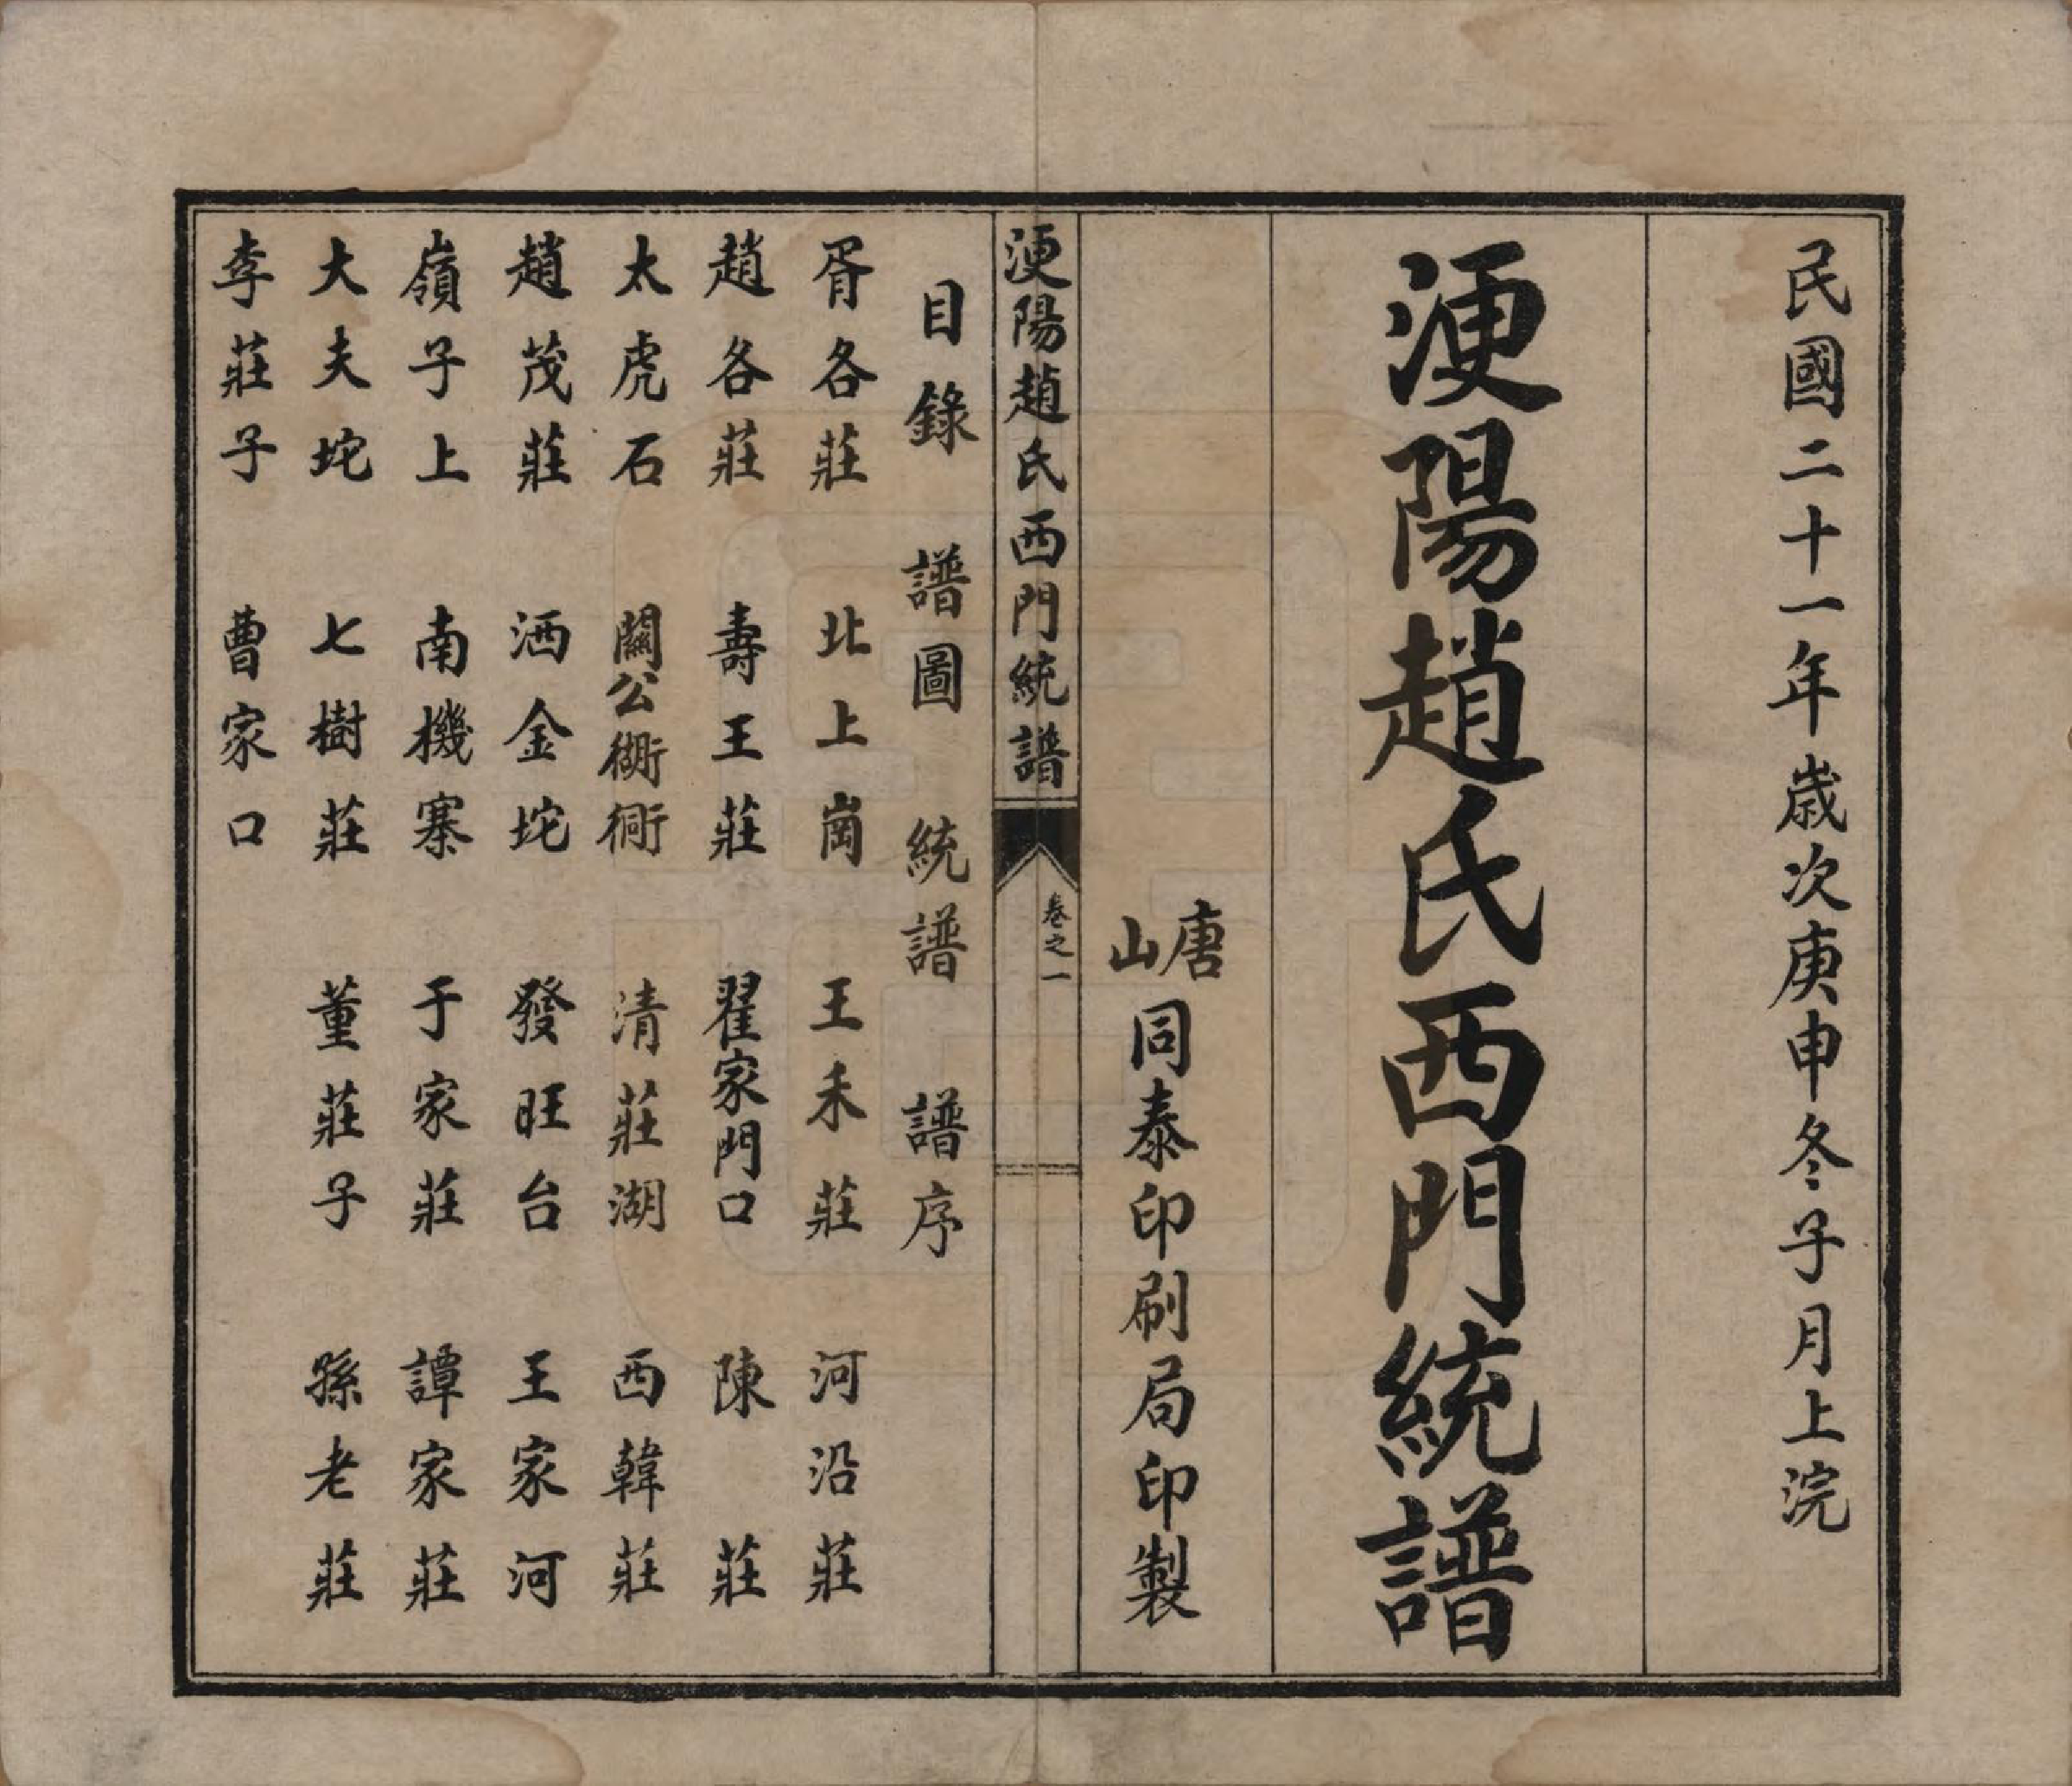 民國二十一年歲次庚申冬子月上浣
浭陽趙氏西門統譜
唐山同泰印刷局印製
浭陽趙氏西門統譜
卷之一
目錄 譜圖 統譜 譜序
胥各莊 北上崗 王禾莊 河沿莊
趙各莊 壽王莊 翟家門口 陳莊
太虎石 關公衚衕 清莊湖 西韓莊
趙茂莊 洒金坨 發旺台 王家河
嶺子上 南機寨 于家莊 譚家莊
大夫坨 七樹莊 董莊子 孫老莊
李莊子 曹家口